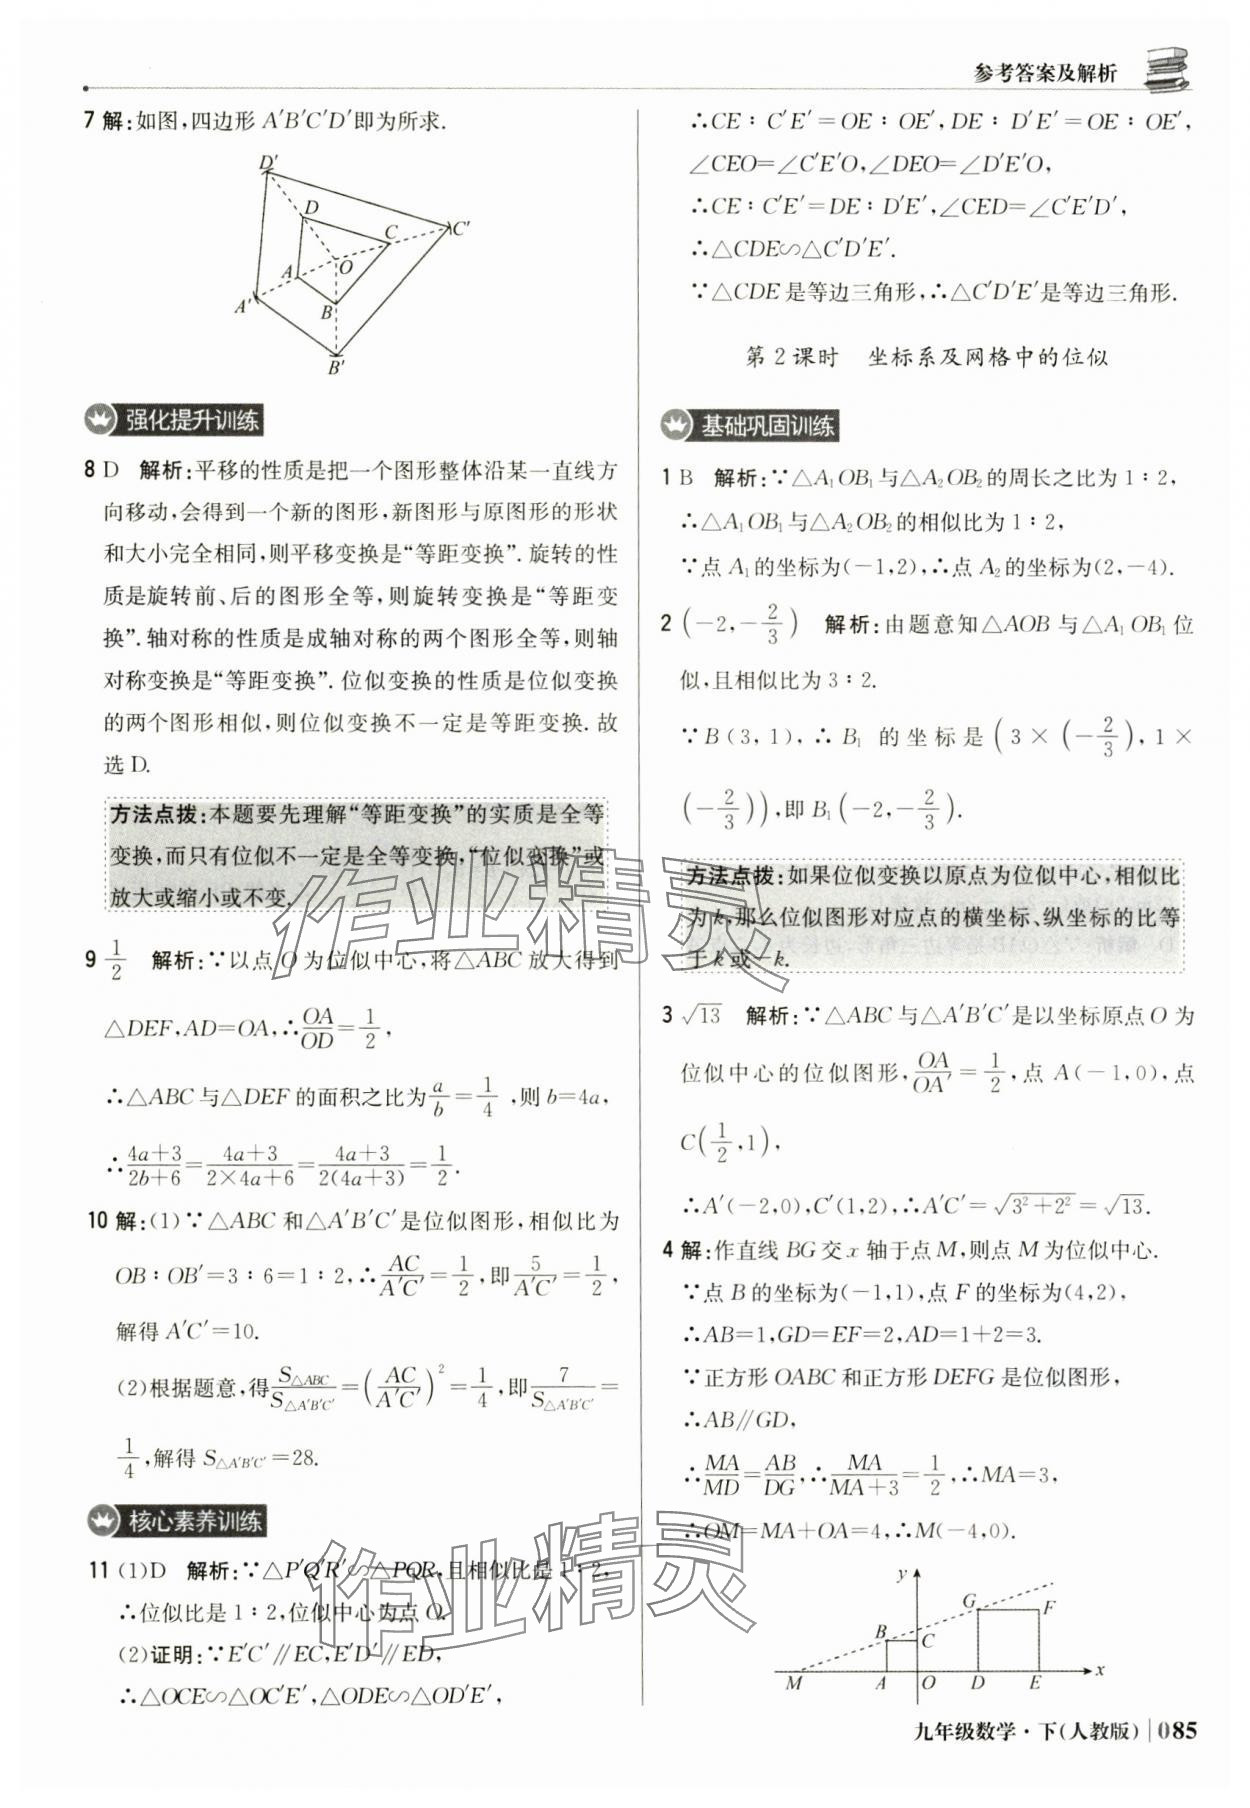 参考答案及解析
7 解:如图,四边形 A′B′C′D′即为所求.
D′
D
C
C′
A
O
A′
B
B′
强化提升训练
8 D 解析:平移的性质是把一个图形整体沿某一直线方
向移动,会得到一个新的图形,新图形与原图形的形状
和大小完全相同,则平移变换是“等距变换”. 旋转的性
质是旋转前、后的图形全等,则旋转变换是“等距变
换”. 轴对称的性质是成轴对称的两个图形全等,则轴
对称变换是“等距变换”. 位似变换的性质是位似变换
的两个图形相似,则位似变换不一定是等距变换. 故
选 D.
方法点拨:本题要先理解“等距变换”的实质是全等
变换,而只有位似不一定是全等变换,“位似变换”或
放大或缩小或不变.
9 1/2 解析:∵以点 O 为位似中心,将△ABC 放大得到
△DEF,AD=OA,∴OA/OD=1/2,
∴△ABC 与△DEF 的面积之比为a/b=1/4 ,则 b=4a,
∴(4a+3)/(2b+6)=(4a+3)/(2×4a+6)=(4a+3)/(2(4a+3))=1/2.
10 解:(1)∵△ABC 和△A′B′C′是位似图形,相似比为
OB∶OB′=3∶6=1∶2,∴AC/A′C′=1/2,即5/A′C′=1/2,
解得 A′C′=10.
(2)根据题意,得S△ABC/S△A′B′C′=(AC/A′C′)²=1/4,即7/S△A′B′C′=
1/4,解得 S△A′B′C′=28.
核心素养训练
11 (1)D 解析:∵△P′Q′R′∽△PQR,且相似比是 1∶2,
∴位似比是 1∶2,位似中心为点 O.
(2)证明:∵E′C′∥EC,E′D′∥ED,
∴△OCE∽△OC′E′,△ODE∽△OD′E′,
∴CE∶C′E′=OE∶OE′,DE∶D′E′=OE∶OE′,
∠CEO=∠C′E′O,∠DEO=∠D′E′O,
∴CE∶C′E′=DE∶D′E′,∠CED=∠C′E′D′,
∴△CDE∽△C′D′E′.
∵△CDE 是等边三角形,∴△C′D′E′是等边三角形.
第 2 课时 坐标系及网格中的位似
基础巩固训练
1 B 解析:∵△A₁OB₁与△A₂OB₂的周长之比为 1∶2,
∴△A₁OB₁与△A₂OB₂的相似比为 1∶2,
∵点 A₁的坐标为(-1,2),∴点 A₂的坐标为(2,-4).
2 (-2,-2/3) 解析:由题意知△AOB 与△A₁OB₁位
似,且相似比为 3∶2.
∵B(3,1),∴B₁ 的坐标是(3×(-2/3),1×
(-2/3)),即 B₁(-2,-2/3).
方法点拨:如果位似变换以原点为位似中心,相似比
为 k,那么位似图形对应点的横坐标、纵坐标的比等
于 k 或-k.
3 √13 解析:∵△ABC 与△A′B′C′是以坐标原点 O 为
位似中心的位似图形,OA/OA′=1/2,点 A(-1,0),点
C(1/2,1),
∴A′(-2,0),C′(1,2),∴A′C′=√(3²+2²)=√13.
4 解:作直线 BG 交 x 轴于点 M,则点 M 为位似中心.
∵点 B 的坐标为(-1,1),点 F 的坐标为(4,2),
∴AB=1,GD=EF=2,AD=1+2=3.
∵正方形 OABC 和正方形 DEFG 是位似图形,
∴AB∥GD,
∴MA/MD=AB/DG,∴MA/(MA+3)=1/2,∴MA=3,
∴OM=MA+OA=4,∴M(-4,0).
y
G
F
B
C
M
A
O
D
E
x
九年级数学·下(人教版) 085
作业精灵
作业精灵